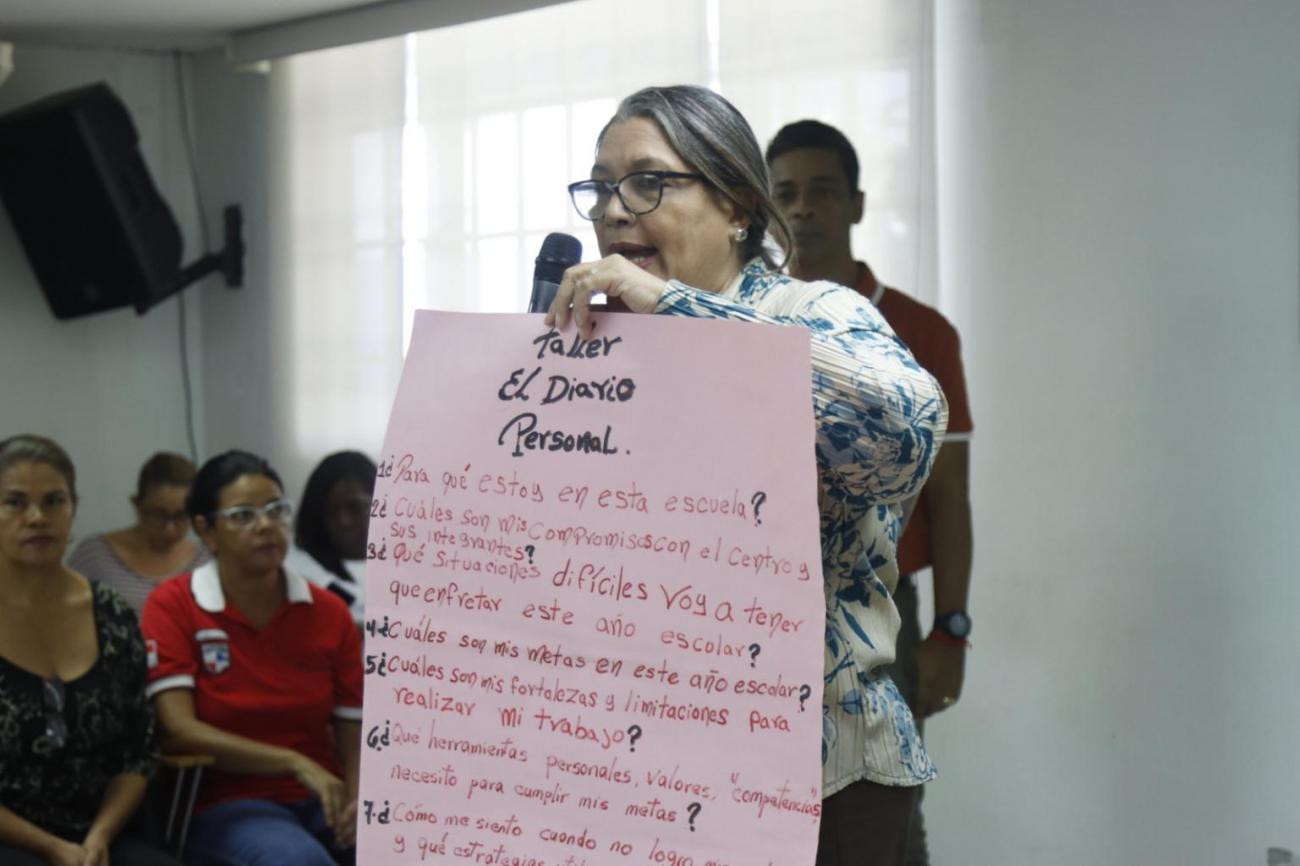 Taller
El Diario
Personal.
1¿Para qué estoy en esta escuela?
2¿Cuáles son mis compromisos con el centro y
sus integrantes?
3¿Qué situaciones difíciles voy a tener
que enfretar este año escolar?
4¿Cuáles son mis metas en este año escolar?
5¿Cuáles son mis fortalezas y limitaciones para
realizar mi trabajo?
6¿Que herramientas personales, valores, "competencias"
necesito para cumplir mis metas?
7.¿Cómo me siento cuando no logro
y qué estrategias